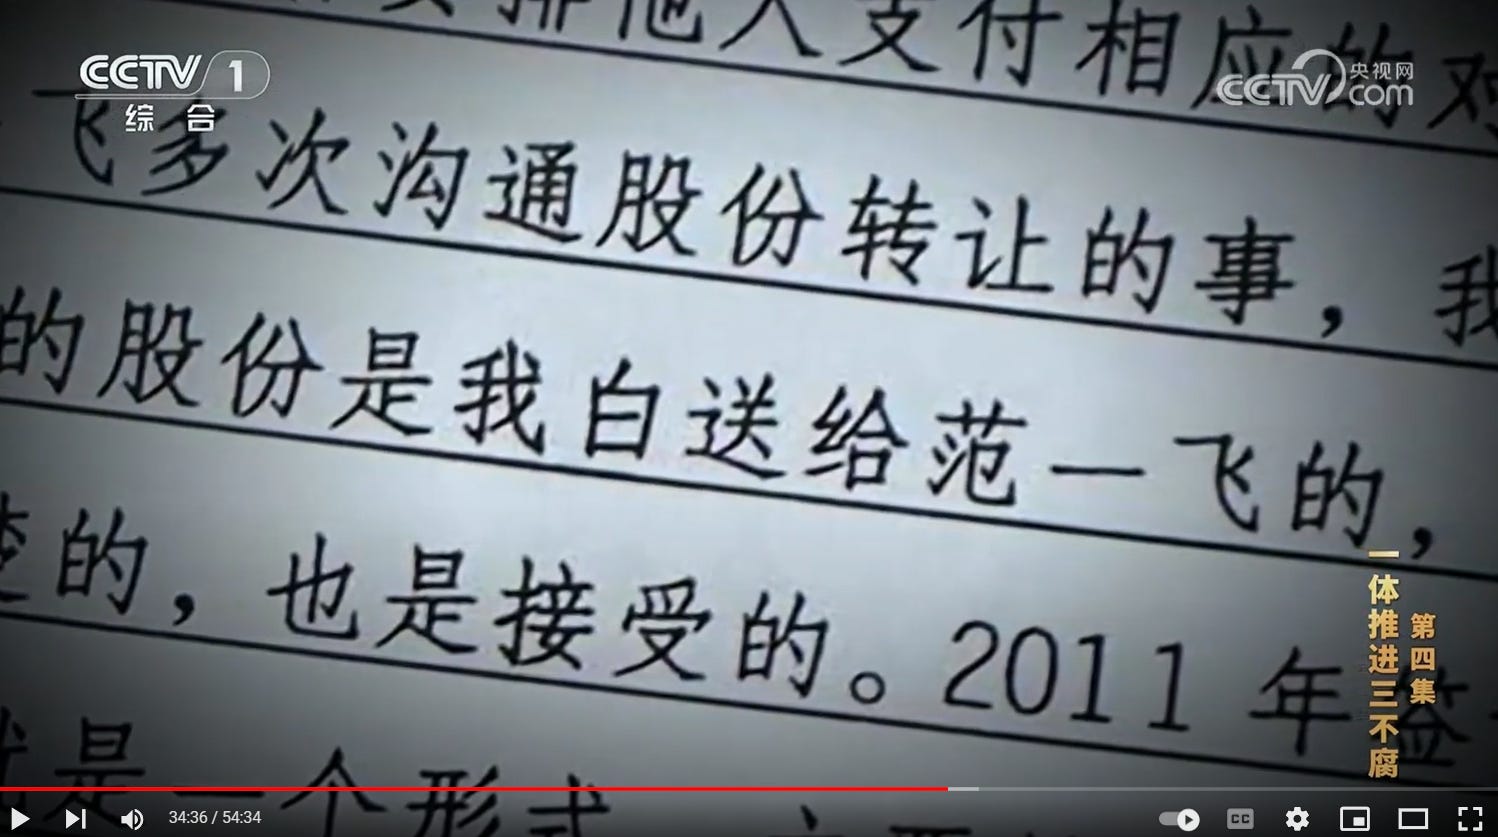 排他人支付相应的对
CCTV 1
综合
央视网
CCTV.com
飞多次沟通股份转让的事，我
的股份是我白送给范一飞的，
楚的，也是接受的。2011年签
就是一个形式
第四集
一体推进三不腐
34:36 / 54:34
CC